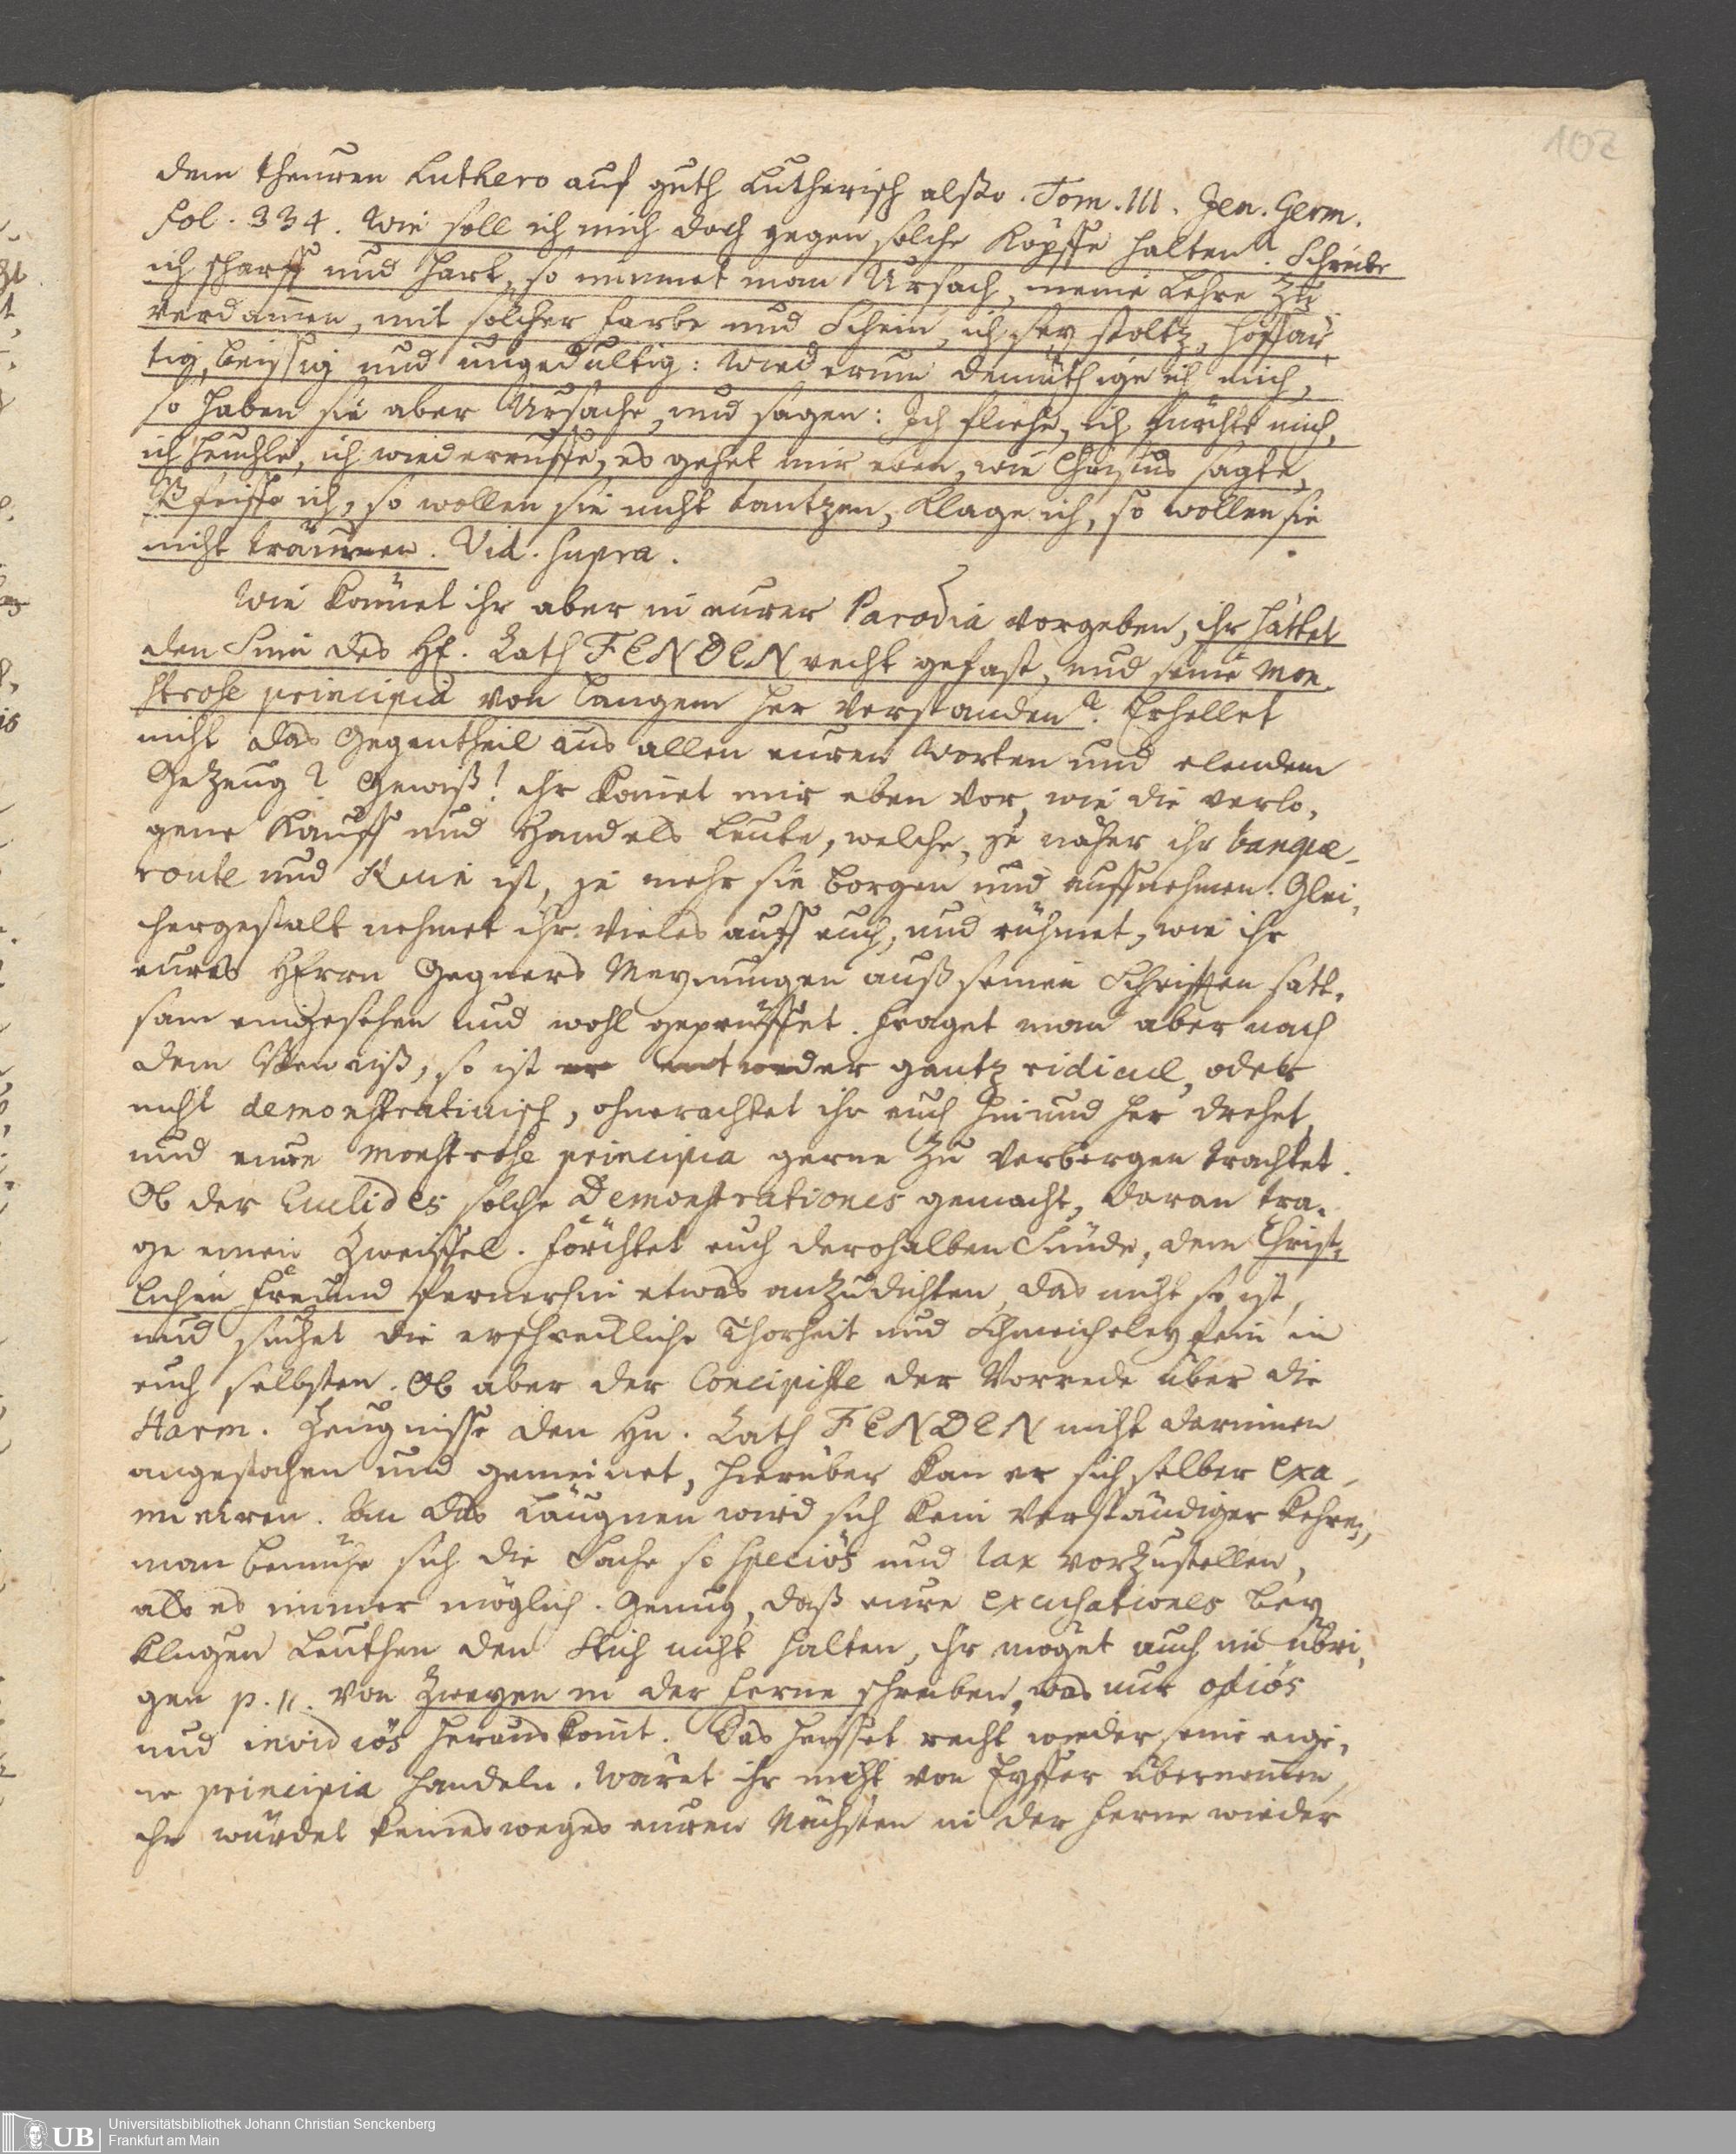 102
dem theuren Luthero auf guth Lutherisch also. Tom. III. Jen. Germ.
fol. 334. Wie soll ich mich doch gegen solche Köpffe halten? Schreibe
ich scharff und hart, so nimmet man Ursach, meine Lehre zu
verdam̄en, mit solcher Farbe und Schein, ich sey stoltz, hoffär-
tig, beissig und ungedultig: Wiederum demüthige ich mich,
so haben sie aber Ursache, und sagen: Ich fliehe, ich fürchte mich,
ich heuchle, ich wiederruffe, es gehet mir eben, wie Christus sagte,
Pfeiffe ich, so wollen sie nicht tantzen, Klage ich, so wollen sie
nicht träuren. Vid. supra.
Wie kön̄et ihr aber in eurer Parodia vorgeben, ihr hättet
den Sinn des H. Rath FENDEN recht gefast, und seine mon-
strose principia von langem her verstanden? Erhellet
nicht das Gegentheil aus allen euren Worten und elendem
Gezeug? Gewiß! ihr kom̄et mir eben vor, wie die verlo-
gene Kauff und Handels Leute, welche, je näher ihr banque-
route und Ruin ist, je mehr sie borgen und auffnehmen. Glei-
chergestalt nehmet ihr vieles auff euch, und rühmet, wie ihr
eures Herrn Gegners Meynungen auß seinen Schrifften satt-
sam eingesehen und wohl geprüffet. Fraget man aber nach
dem Beweiß, so ist er entweder gantz ridicul, oder
nicht demonstrativisch, ohnerachtet ihr euch hin und her drehet,
und eure monstrose principia gerne zu verbergen trachtet.
Ob der Euclides solche Demonstrationes gemacht, daran tra-
ge einen Zweiffel. Förchtet euch derohalben Sünde, dem Christ-
lichen Freund fernerhin etwas anzudichten, das nicht so ist,
und suchet die erschreckliche Thorheit und Schmeicheley fein in
euch selbsten. Ob aber der Concipiste der Vorrede über die
Harm. Zeugnisse den Hn. Rath FENDEN nicht darinnen
angestochen und gemeinet, hierüber kan er sich selber exa-
miniren. An das Läugnen wird sich kein Verständiger kehren,
man bemühe sich die Sache so speciös und lax vorzustellen,
als es immer möglich. Genug, daß eure excusationes bey
klugen Leuthen den Stich nicht halten, ihr möget auch im übri-
gen p. 11. von Zweyen in der Ferne schreiben, was nur odiös
und invidiös herauskom̄t. Das heisset recht wieder seine eige-
ne principia handeln. Wäret ihr nicht von Eyffer übernom̄en,
ihr würdet keinesweges euren Nächsten in der Ferne wieder
Universitätsbibliothek Johann Christian Senckenberg
Frankfurt am Main
UB